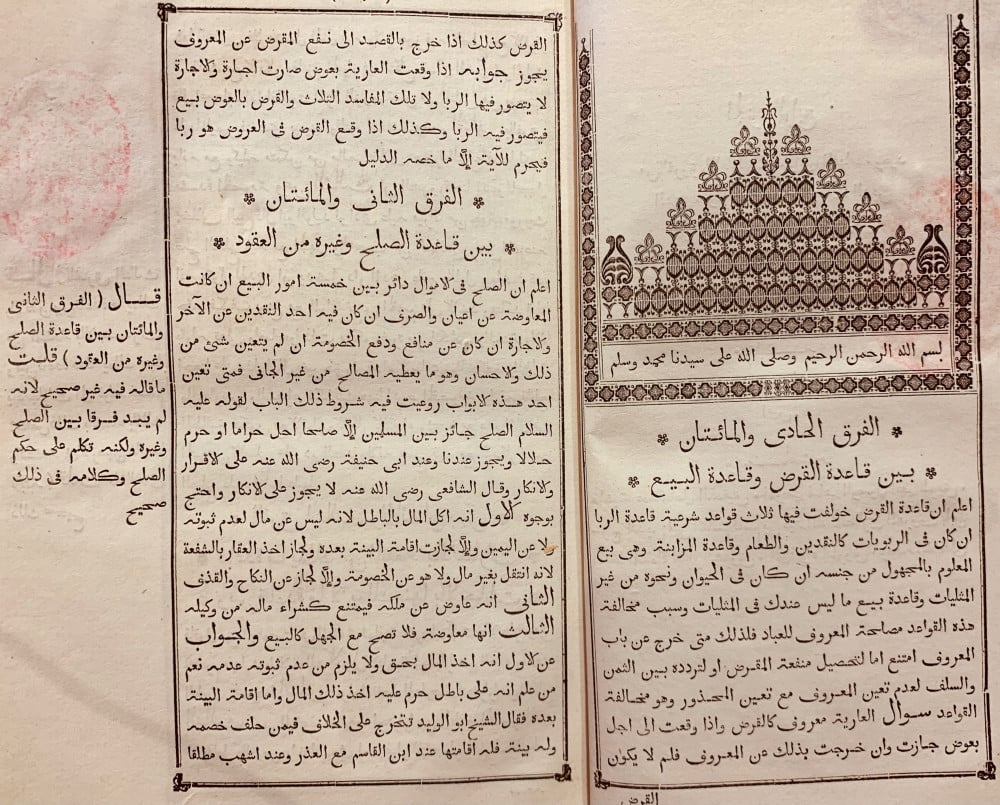 بسم الله الرحمن الرحيم وصلى الله على سيدنا محمد وسلم
الفرق الحادى والمائتان
بين قاعدة القرض وقاعدة البيع
اعلم ان قاعدة القرض خولفت فيها ثلاث قواعد شرعية قاعدة الربا
ان كان فى الربويات كالنقدين والطعام وقاعدة المزابنة وهى بيع
المعلوم بالمجهول من جنسه ان كان فى الحيوان ونحوه من غير
المثليات وقاعدة بيع ما ليس عندك فى المثليات وسبب مخالفة
هذه القواعد مصلحة المعروف للعباد فلذلك متى خرج عن باب
المعروف امتنع اما لتحصيل منفعة المقرض او لتردده بين الثمن
والسلف لعدم تعين المعروف مع تعين المحذور وهو مخالفة
القواعد سوال العارية معروف كالقرض واذا وقعت الى اجل
بعوض جازت وان خرجت بذلك عن المعروف فلم لا يكون
القرض
القرض كذلك اذا خرج بالقصد الى نفع المقرض عن المعروف
يجوز جوابه اذا وقعت العارية بعوض صارت اجارة والاجارة
لا يتصور فيها الربا ولا تلك المفاسد الثلاث والقرض بالعوض بيع
فيتصور فيه الربا وكذلك اذا وقع القرض فى العروض هو ربا
فيحرم للآية إلا ما خصه الدليل
الفرق الثانى والمائتان
بين قاعدة الصلح وغيره من العقود
اعلم ان الصلح فى الاموال دائر بين خمسة امور البيع ان كانت
المعاوضة عن اعيان والصرف ان كان فيه احد النقدين عن الآخر
والاجارة ان كان عن منافع ودفع الخصومة ان لم يتعين شئ من
ذلك والاحسان وهو ما يعطيه المصالح من غير الجانى فمتى تعين
احد هذه الابواب روعيت فيه شروط ذلك الباب لقوله عليه
السلام الصلح جائز بين المسلمين إلا صلحا احل حراما او حرم
حلالا ويجوز عندنا وعند ابى حنيفة رضى الله عنه على الاقرار
والانكار وقال الشافعى رضى الله عنه لا يجوز على الانكار واحتج
بوجوه الاول انه اكل المال بالباطل لانه ليس عن مال لعدم ثبوته
ولا عن اليمين وإلا لجازت اقامة البينة بعده ولجاز اخذ العقار بالشفعة
لانه انتقل بغير مال ولا هو عن الخصومة وإلا لجاز عن النكاح والقذف
الثانى انه عاوض عن ملكه فيمتنع كشراء ماله من وكيله
الثالث انها معاوضة فلا تصح مع الجهل كالبيع والجواب
عن الاول انه اخذ المال بحق ولا يلزم من عدم ثبوته عدمه نعم
من علم انه على باطل حرم عليه اخذ ذلك المال واما اقامة البينة
بعده فقال الشيخ ابو الوليد تتخرج على الخلاف فيمن حلف خصمه
وله بينة فله اقامتها عند ابن القاسم مع العذر وعند اشهب مطلقا
قال ( الفرق الثانى
والمائتان بين قاعدة الصلح
وغيره من العقود ) قلت
ما قاله فيه غير صحيح لانه
لم يبد فرقا بين الصلح
وغيره ولكنه تكلم على حكم
الصلح وكلامه فى ذلك
صحيح